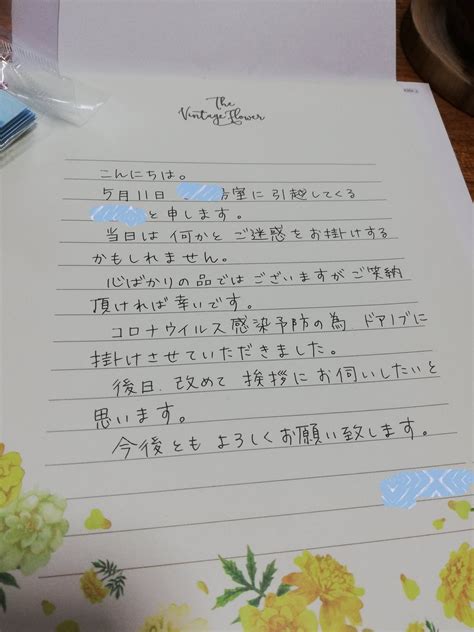 The
Vintage Flower
こんにちは。
5月11日 号室に引越してくる
と申します。
当日は何かとご迷惑をお掛けする
かもしれません。
心ばかりの品ではございますがご笑納
頂ければ幸いです。
コロナウイルス感染予防の為 ドアノブに
掛けさせていただきました。
後日、改めて挨拶にお伺いしたいと
思います。
今後ともよろしくお願い致します。